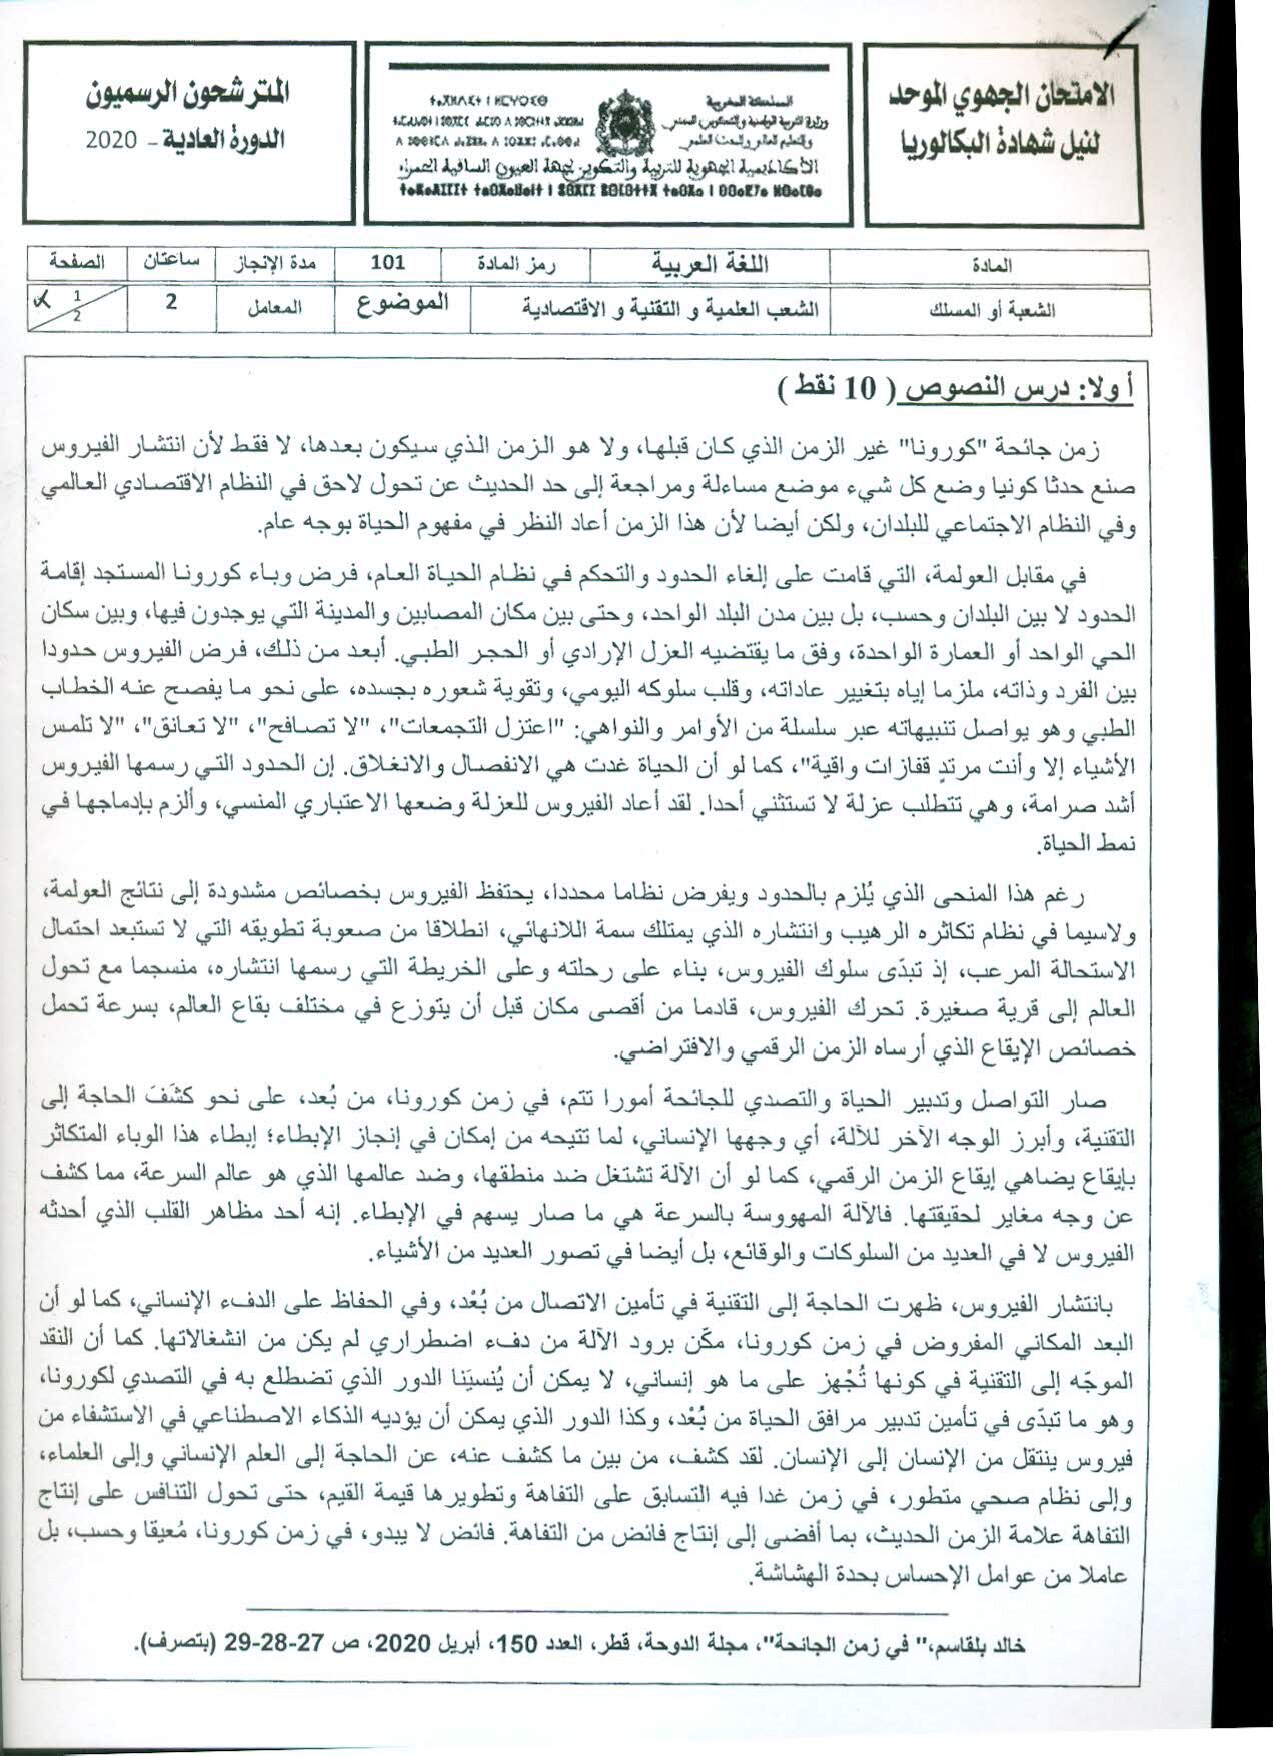 الامتحان الجهوي الموحد
لنيل شهادة البكالوريا
المملكة المغربية
وزارة التربية الوطنية والتكوين المهني
والتعليم العالي والبحث العلمي
الأكاديمية الجهوية للتربية والتكوين لجهة العيون الساقية الحمراء
المترشحون الرسميون
الدورة العادية - 2020
المادة اللغة العربية رمز المادة 101 مدة الإنجاز ساعتان الصفحة
الشعبة أو المسلك الشعب العلمية و التقنية و الاقتصادية الموضوع المعامل 2 1/2
أ ولا: درس النصوص ( 10 نقط )
زمن جائحة "كورونا" غير الزمن الذي كان قبلها، ولا هو الزمن الذي سيكون بعدها، لا فقط لأن انتشار الفيروس
صنع حدثا كونيا وضع كل شيء موضع مساءلة ومراجعة إلى حد الحديث عن تحول لاحق في النظام الاقتصادي العالمي
وفي النظام الاجتماعي للبلدان، ولكن أيضا لأن هذا الزمن أعاد النظر في مفهوم الحياة بوجه عام.
في مقابل العولمة، التي قامت على إلغاء الحدود والتحكم في نظام الحياة العام، فرض وباء كورونا المستجد إقامة
الحدود لا بين البلدان وحسب، بل بين مدن البلد الواحد، وحتى بين مكان المصابين والمدينة التي يوجدون فيها، وبين سكان
الحي الواحد أو العمارة الواحدة، وفق ما يقتضيه العزل الإرادي أو الحجر الطبي. أبعد من ذلك، فرض الفيروس حدودا
بين الفرد وذاته، ملزما إياه بتغيير عاداته، وقلب سلوكه اليومي، وتقوية شعوره بجسده، على نحو ما يفصح عنه الخطاب
الطبي وهو يواصل تنبيهاته عبر سلسلة من الأوامر والنواهي: "اعتزل التجمعات"، "لا تصافح"، "لا تعانق"، "لا تلمس
الأشياء إلا وأنت مرتدٍ قفازات واقية"، كما لو أن الحياة غدت هي الانفصال والانغلاق. إن الحدود التي رسمها الفيروس
أشد صرامة، وهي تتطلب عزلة لا تستثني أحدا. لقد أعاد الفيروس للعزلة وضعها الاعتباري المنسي، وألزم بإدماجها في
نمط الحياة.
رغم هذا المنحى الذي يُلزم بالحدود ويفرض نظاما محددا، يحتفظ الفيروس بخصائص مشدودة إلى نتائج العولمة،
ولاسيما في نظام تكاثره الرهيب وانتشاره الذي يمتلك سمة اللانهائي، انطلاقا من صعوبة تطويقه التي لا تستبعد احتمال
الاستحالة المرعب، إذ تبدّى سلوك الفيروس، بناء على رحلته وعلى الخريطة التي رسمها انتشاره، منسجما مع تحول
العالم إلى قرية صغيرة. تحرك الفيروس، قادما من أقصى مكان قبل أن يتوزع في مختلف بقاع العالم، بسرعة تحمل
خصائص الإيقاع الذي أرساه الزمن الرقمي والافتراضي.
صار التواصل وتدبير الحياة والتصدي للجائحة أمورا تتم، في زمن كورونا، من بُعد، على نحو كشَفَ الحاجة إلى
التقنية، وأبرز الوجه الآخر للآلة، أي وجهها الإنساني، لما تتيحه من إمكان في إنجاز الإبطاء؛ إبطاء هذا الوباء المتكاثر
بإيقاع يضاهي إيقاع الزمن الرقمي، كما لو أن الآلة تشتغل ضد منطقها، وضد عالمها الذي هو عالم السرعة، مما كشف
عن وجه مغاير لحقيقتها. فالآلة المهووسة بالسرعة هي ما صار يسهم في الإبطاء. إنه أحد مظاهر القلب الذي أحدثه
الفيروس لا في العديد من السلوكات والوقائع، بل أيضا في تصور العديد من الأشياء.
بانتشار الفيروس، ظهرت الحاجة إلى التقنية في تأمين الاتصال من بُعْد، وفي الحفاظ على الدفء الإنساني، كما لو أن
البعد المكاني المفروض في زمن كورونا، مكّن برود الآلة من دفء اضطراري لم يكن من انشغالاتها. كما أن النقد
الموجّه إلى التقنية في كونها تُجْهز على ما هو إنساني، لا يمكن أن يُنسيَنا الدور الذي تضطلع به في التصدي لكورونا،
وهو ما تبدّى في تأمين تدبير مرافق الحياة من بُعْد، وكذا الدور الذي يمكن أن يؤديه الذكاء الاصطناعي في الاستشفاء من
فيروس ينتقل من الإنسان إلى الإنسان. لقد كشف، من بين ما كشف عنه، عن الحاجة إلى العلم الإنساني وإلى العلماء،
وإلى نظام صحي متطور، في زمن غدا فيه التسابق على التفاهة وتطويرها قيمة القيم، حتى تحول التنافس على إنتاج
التفاهة علامة الزمن الحديث، بما أفضى إلى إنتاج فائض من التفاهة. فائض لا يبدو، في زمن كورونا، مُعيقا وحسب، بل
عاملا من عوامل الإحساس بحدة الهشاشة.
خالد بلقاسم،" في زمن الجائحة"، مجلة الدوحة، قطر، العدد 150، أبريل 2020، ص 27-28-29 (بتصرف).